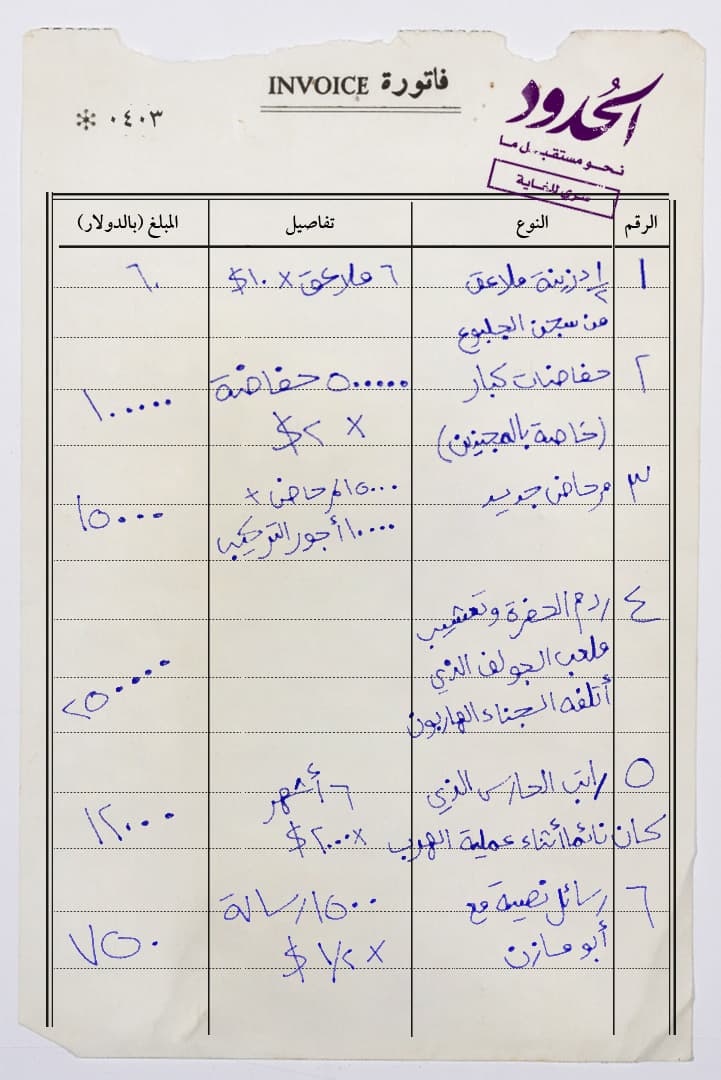 فاتورة INVOICE
٠٤٠٣ *
الحدود
نحو مستقبل ما
سري للغاية
الرقم النوع تفاصيل المبلغ (بالدولار)
١ ١/٢ دزينة ملاعق ٦ ملاعق × ١٠$ ٦٠
من سجن الجلبوع
٢ حفاضات كبار ٥٠٠٠٠٠ حفاضة ١٠٠٠٠٠٠
(خاصة بالمجنزين) × ٢$
٣ مرحاض جديد ٥٠٠٠ المرحاض + ١٥٠٠٠
١٠٠٠٠ أجور التركيب
٤ ردم الحفرة وتعشيب
ملعب الجولف الذي ٢٥٠٠٠٠
أتلفه السجناء الهاربون
٥ راتب الحارس الذي ٦ أشهر ١٢٠٠٠
كان نائما أثناء عملية الهرب × ٢٠٠٠$
٦ رسائل نصية مع ١٥٠٠ رسالة ٧٥٠
أبو مازن × ١/٢ $